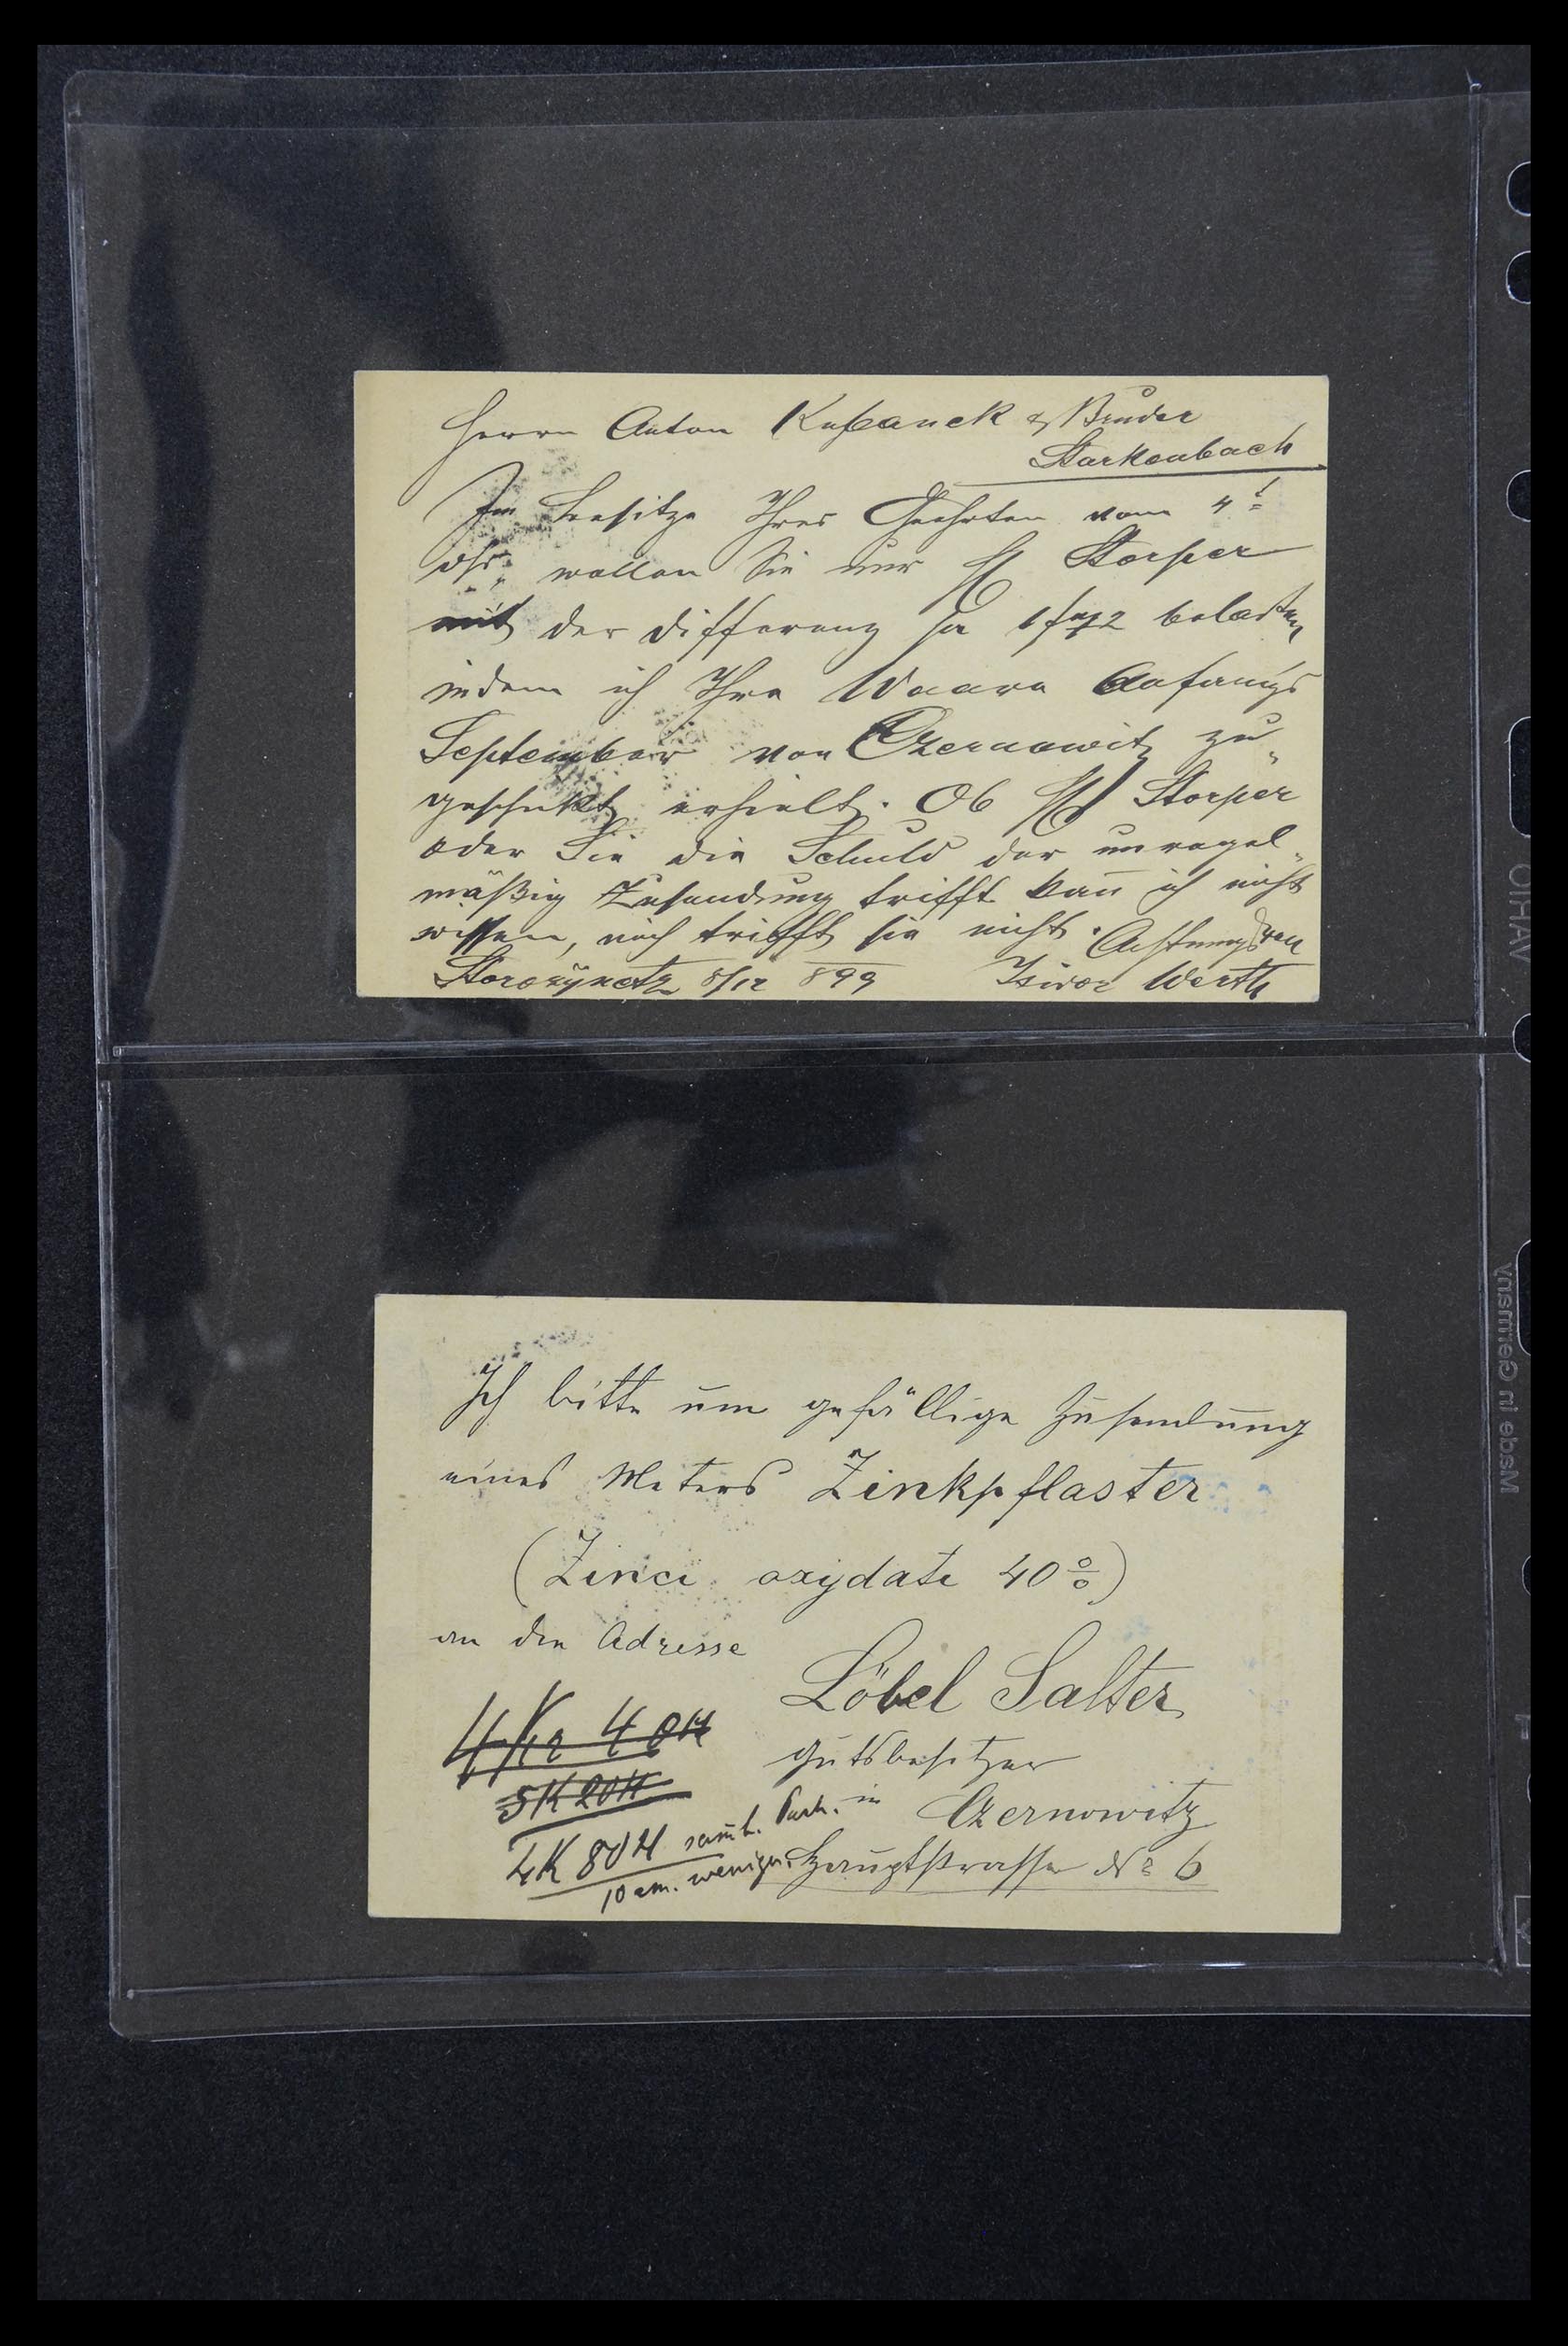 Herrn Anton Kubanek & Bruder
Starkenbach
Im Besitze Ihres Geehrten vom 4t
dss., wollen Sie nur H Storper
mit der Differenz pr belasten
indem ich Ihre Waare Anfangs
September von Czernowitz zu„
geschikt erhielt. Ob H Storper
oder Sie die Schuld der unregel„
mäßig Zusendung trifft kan̄ ich nicht
wissen, mich trifft sie nicht. Achtungsvoll
Storozynetz 8/12 899 Isidor Werth
Ich bitte um gefällige Zusendung
eines Meters Zinkpflaster
(Zinci oxydati 40%)
an die Adresse
Löbel Salter
Gutsbesitzer
in Czernowitz
Hauptstrasse No 6
4 Kr 40H
5K 20H
4K 80H sam̄t. Park.
10 cm. weniger.
VAHIO
Made in Germany